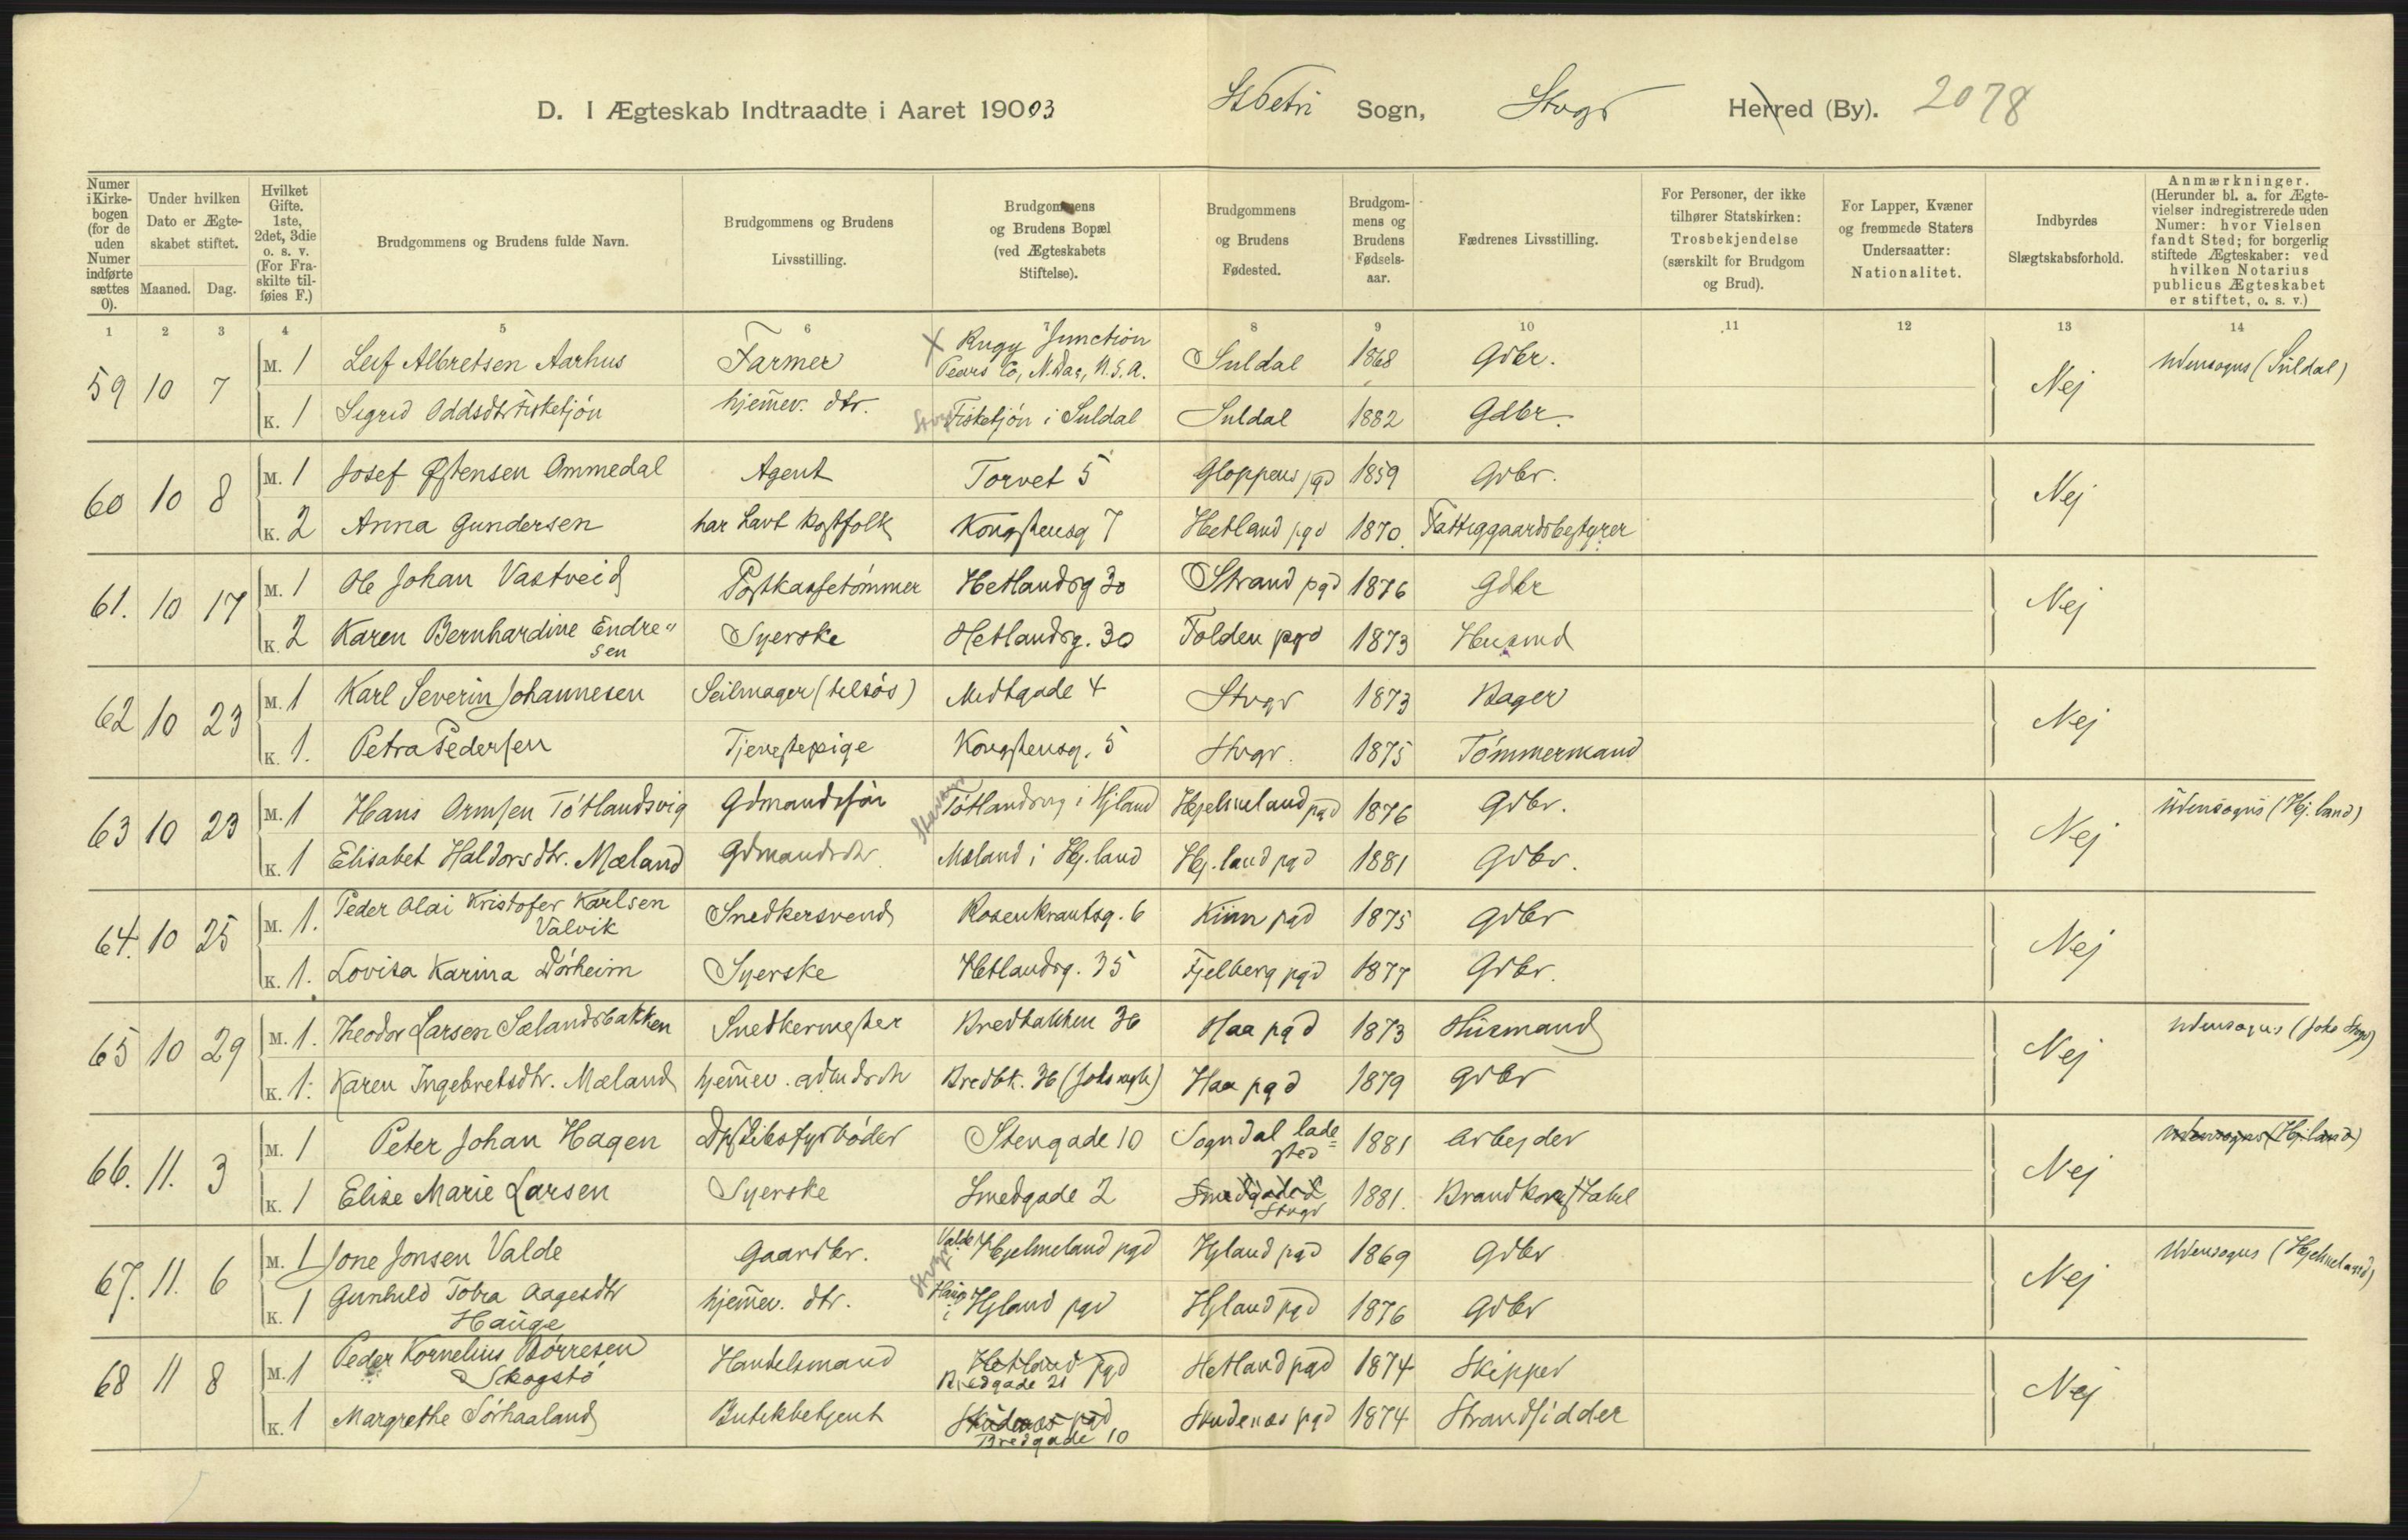 D. I Ægteskab Indtraadte i Aaret 1903
St Petri Sogn, Stvgr Herred (By). 2078
Numer i Kirkebogen (for de uden Numer indførte sættes 0).
Under hvilken Dato er Ægteskabet stiftet.
Maaned. Dag.
Hvilket Gifte. 1ste, 2det, 3die o. s. v. (For Fraskilte tilføies F.)
Brudgommens og Brudens fulde Navn.
Brudgommens og Brudens Livsstilling.
Brudgommens og Brudens Bopæl (ved Ægteskabets Stiftelse).
Brudgommens og Brudens Fødested.
Brudgommens og Brudens Fødselsaar.
Fædrenes Livsstilling.
For Personer, der ikke tilhører Statskirken: Trosbekjendelse (særskilt for Brudgom og Brud).
For Lapper, Kvæner og fremmede Staters Undersaatter: Nationalitet.
Indbyrdes Slægtskabsforhold.
Anmærkninger. (Herunder bl. a. for Ægtevielser indregistrerede uden Numer: hvor Vielsen fandt Sted; for borgerlig stiftede Ægteskaber: ved hvilken Notarius publicus Ægteskabet er stiftet, o. s. v.)
1 2 3 4 5 6 7 8 9 10 11 12 13 14
59 10 7 M. 1 Leif Albretsen Aarhus Farmer X Rugy Junction Pears Co, N.Dac, U.S.A. Suldal 1868 Gdbr. Nej Udensogns (Suldal)
K. 1 Sigrid Oddsdtr Fisketjön hjemev. dtr. Stvgr Fisketjön i Suldal Suldal 1882 Gdbr.
60 10 8 M. 1 Josef Østensen Ommedal Agent Torvet 5 Gloppens pgd 1859 Gdbr. Nej
K. 2 Anna Gundersen har havt Kostfolk Kongstensg 7 Hetland pgd 1870. Fattiggaardsbestyrer
61. 10 17 M. 1 Ole Johan Vastveid Postkassetømmer Hetlandsg 30 Strand pgd 1876 Gdbr Nej
K. 2 Karen Bernhardine Endresen Syerske Hetlandsg. 30 Folden pgd 1873 Husmd
62 10 23 M. 1 Karl Severin Johannesen Seilmager (tilsøs) Midtgade 4 Stvgr 1873 Bager Nej
K. 1. Petra Pedersen Tjenestepige Kongstensg. 5 Stvgr. 1875 Tømmermand
63 10 23 M. 1 Hans Ormsen Tøtlandsvig Gdmandssøn Stavan Tøtlandsvig i Hjland Hjelmeland pgd 1876 Gdbr. Nej Udensogns (Hj.land)
K. 1 Elisabet Haldorsdtr. Mæland Gdmandsdtr Mæland i Hj.land Hj.land pgd 1881 Gdbr.
64. 10 25 M. 1. Peder Olai Kristofer Karlsen Valvik Snedkersvend Rosenkrantsg. 6 Kinn pgd 1875 Gdbr Nej
K. 1. Lovisa Karina Dørheim Syerske Hetlandsg. 35 Fjelberg pgd 1877 Gdbr.
65 10 29 M. 1. Theodor Larsen Sælandsbakken Snedkermester Bredbakken 36 Haa pgd 1873 Husmand Nej Udensogns (Johs Stvgr)
K. 1. Karen Ingebretsdtr. Mæland hjemev. gdmdsdtr Bredbk. 36 (Johs sogn) Haa pgd 1879 Gdbr
66. 11. 3 M. 1 Peter Johan Hagen Dpskibsfyrbøder Stengade 10 Sogndal ladested 1881 Arbejder Nej Udensogns (Hj.land)
K. 1 Elise Marie Larsen Syerske Smedgade 2 Smedgade 2 Stvgr 1881. Brandkonstabel
67. 11. 6 M. 1 Jone Jonsen Valde Gaardbr. Stvgr Valde i Hjelmeland pgd Hjland pgd 1869 Gdbr Nej Udensogns (Hjelmeland)
K. 1 Gunhild Tobra Aagesdtr Hauge hjemev. dtr. Haug i Hjland pgd Hjland pgd 1876 Gdbr
68 11 8 M. 1 Peder Kornelius Børresen Skogstø Handelsmand Hetland pgd Bredgade 21 Hetland pgd 1874 Skipper Nej
K. 1 Margrethe Sørhaaland Butikbetjent Skudenæs pgd Bredgade 10 Skudenæs pgd 1874 Strandsidder